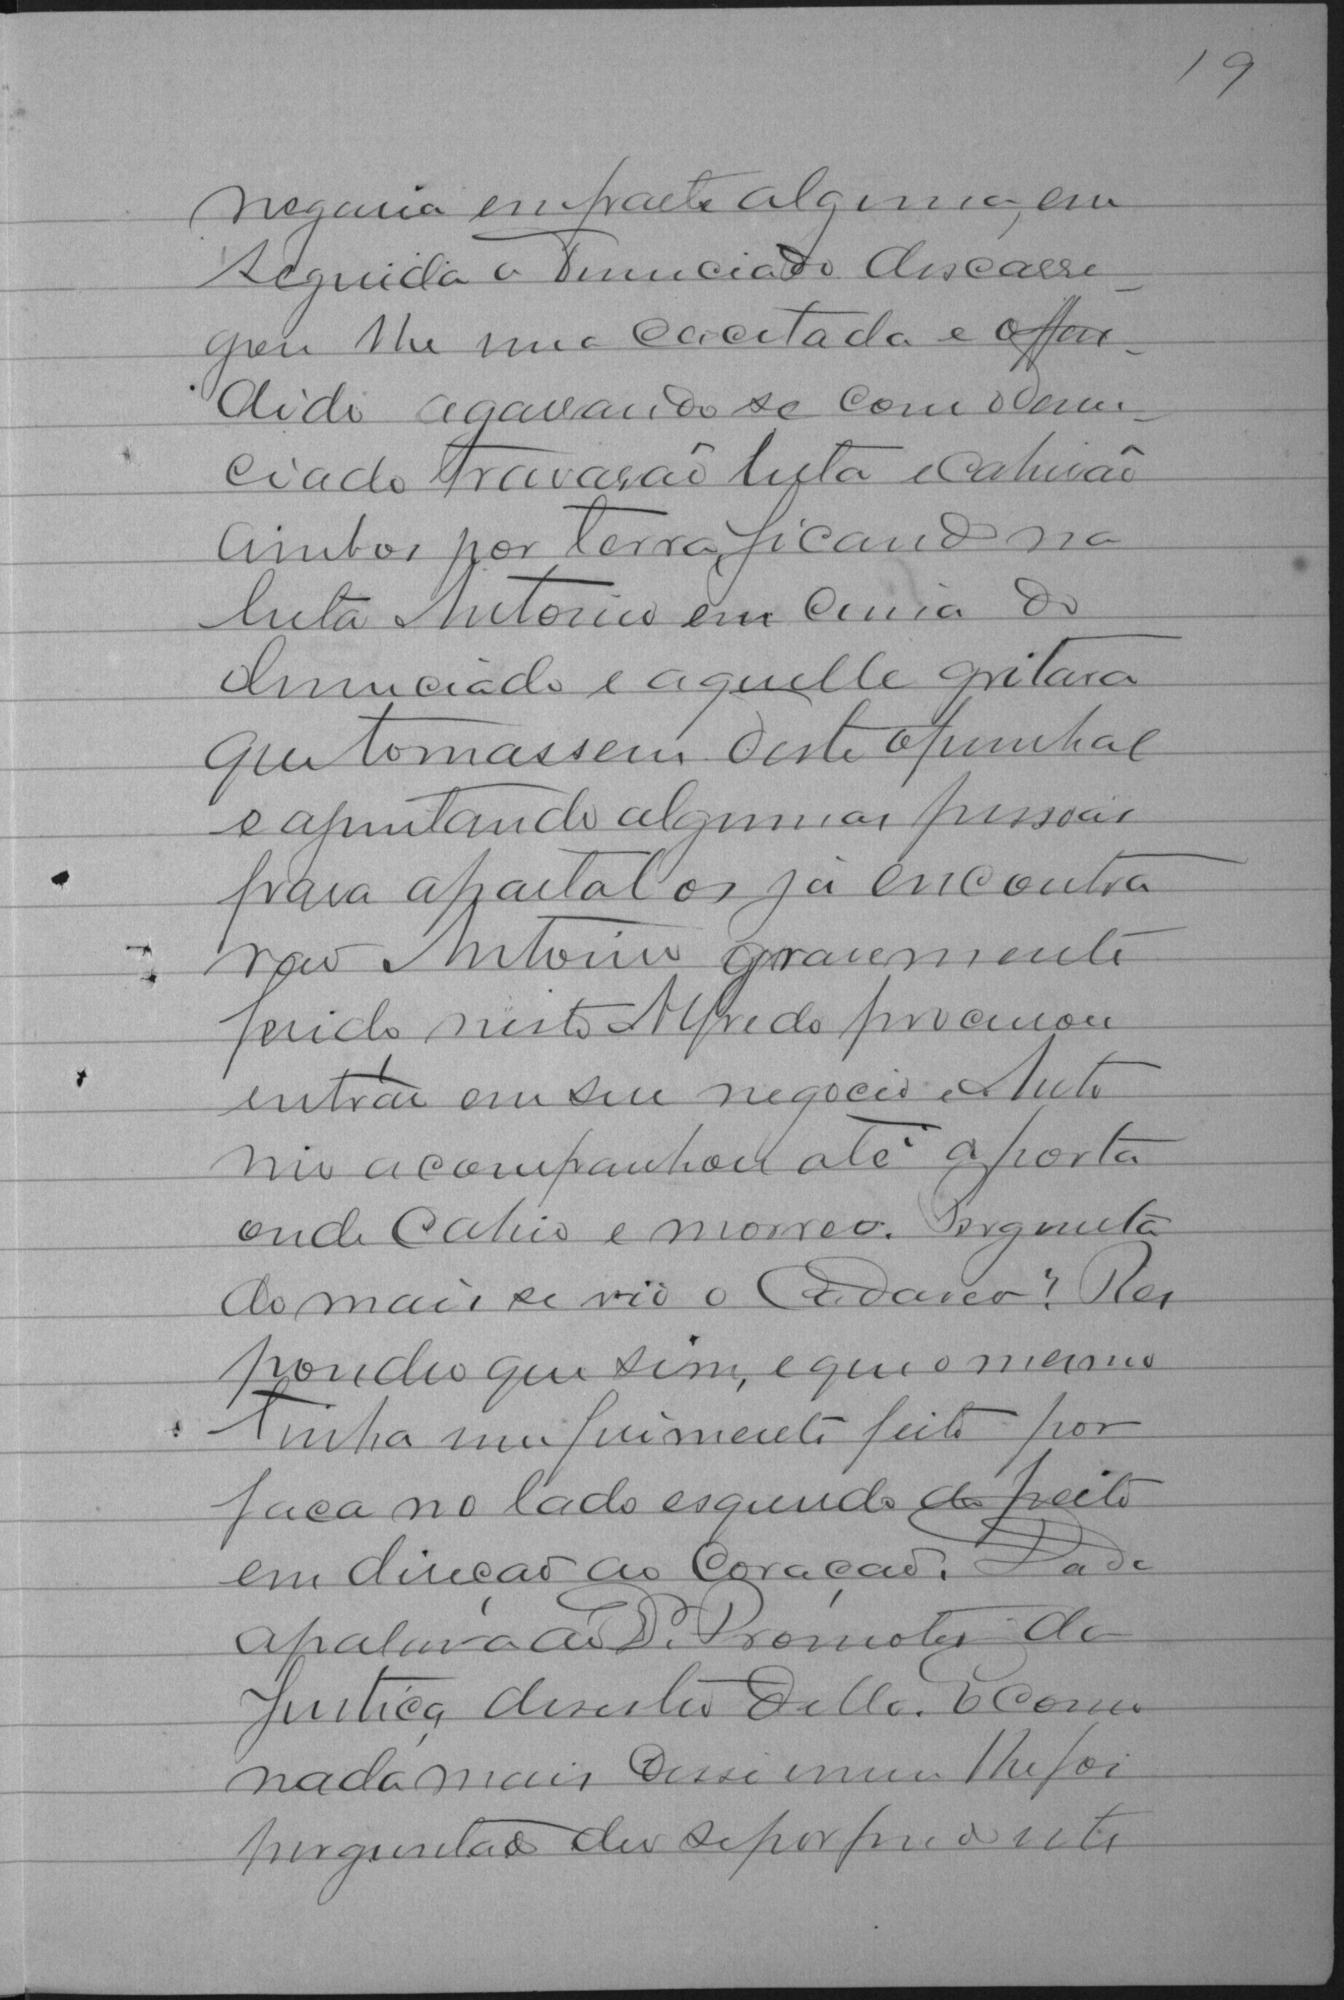 19
negaria em parte alguma, em
seguida o denunciado descarre-
gou lhe uma cacetada e offen-
dido agarrando se com o denun-
ciado travarão luta e cahirão
ambos por terra, ficando na
luta Antonio em cima do
denunciado e aquelle gritara
que tomassem deste o punhal
e apuntando algumas pessoas
para apartal os já encontra
rão Antonio gravemente
ferido nisto Alfredo procurou
entrar em seu negocio e Anto
nio acompanhou até a porta
onde cahio e morreo. Pergunta
do mais se vio o Cadaver? Res
pondeo que sim, e que o mesmo
tinha um ferimento feito por
faca no lado esquerdo do peito
em direção ao Coração. Dada
a palavra ao Dr. Promotor da
Justiça, desistio della. E como
nada mais disse e nem lhe foi
perguntado deo se por findo este